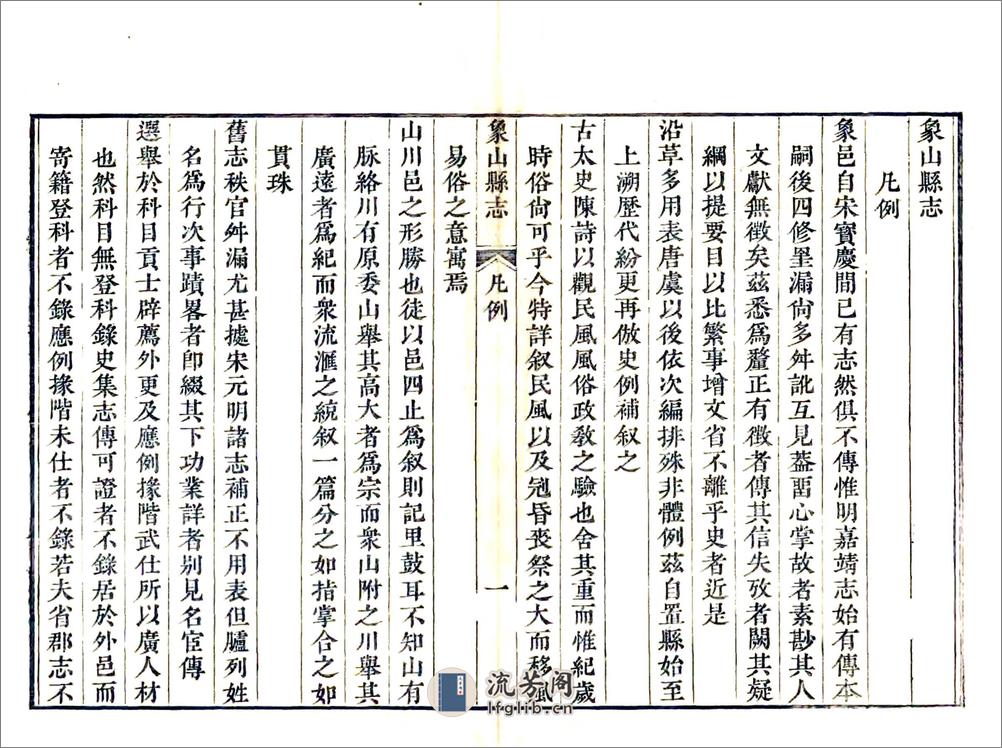 象山縣志
凡例
象邑自宋寳慶間已有志然俱不傳惟明嘉靖志始有傳本
嗣後四修里漏尙多舛訛互見葢畱心掌故者素尠其人
文獻無徵矣茲悉爲釐正有徵者傳其信失攷者闕其疑
綱以提要目以比繁事增文省不離乎史者近是
沿革多用表唐虞以後依次編排殊非體例茲自置縣始至
上溯歷代紛更再倣史例補叙之
古太史陳詩以觀民風風俗政敎之驗也舍其重而惟紀歲
時俗尙可乎今特詳叙民風以及冠昏喪祭之大而移風
象山縣志
凡例
一
易俗之意寓焉
山川邑之形勝也徒以邑四止爲叙則記里鼓耳不知山有
脉絡川有原委山舉其高大者爲宗而衆山附之川舉其
廣遠者爲紀而衆流滙之統叙一篇分之如指掌合之如
貫珠
舊志秩官舛漏尤甚據宋元明諸志補正不用表但臚列姓
名爲行次事蹟畧者卽綴其下功業詳者别見名宦傳
選舉於科目貢士辟薦外更及應例掾階武仕所以廣人材
也然科目無登科錄史集志傳可證者不錄居於外邑而
寄籍登科者不錄應例掾階未仕者不錄若夫省郡志不
流芳阁
lfglib.cn